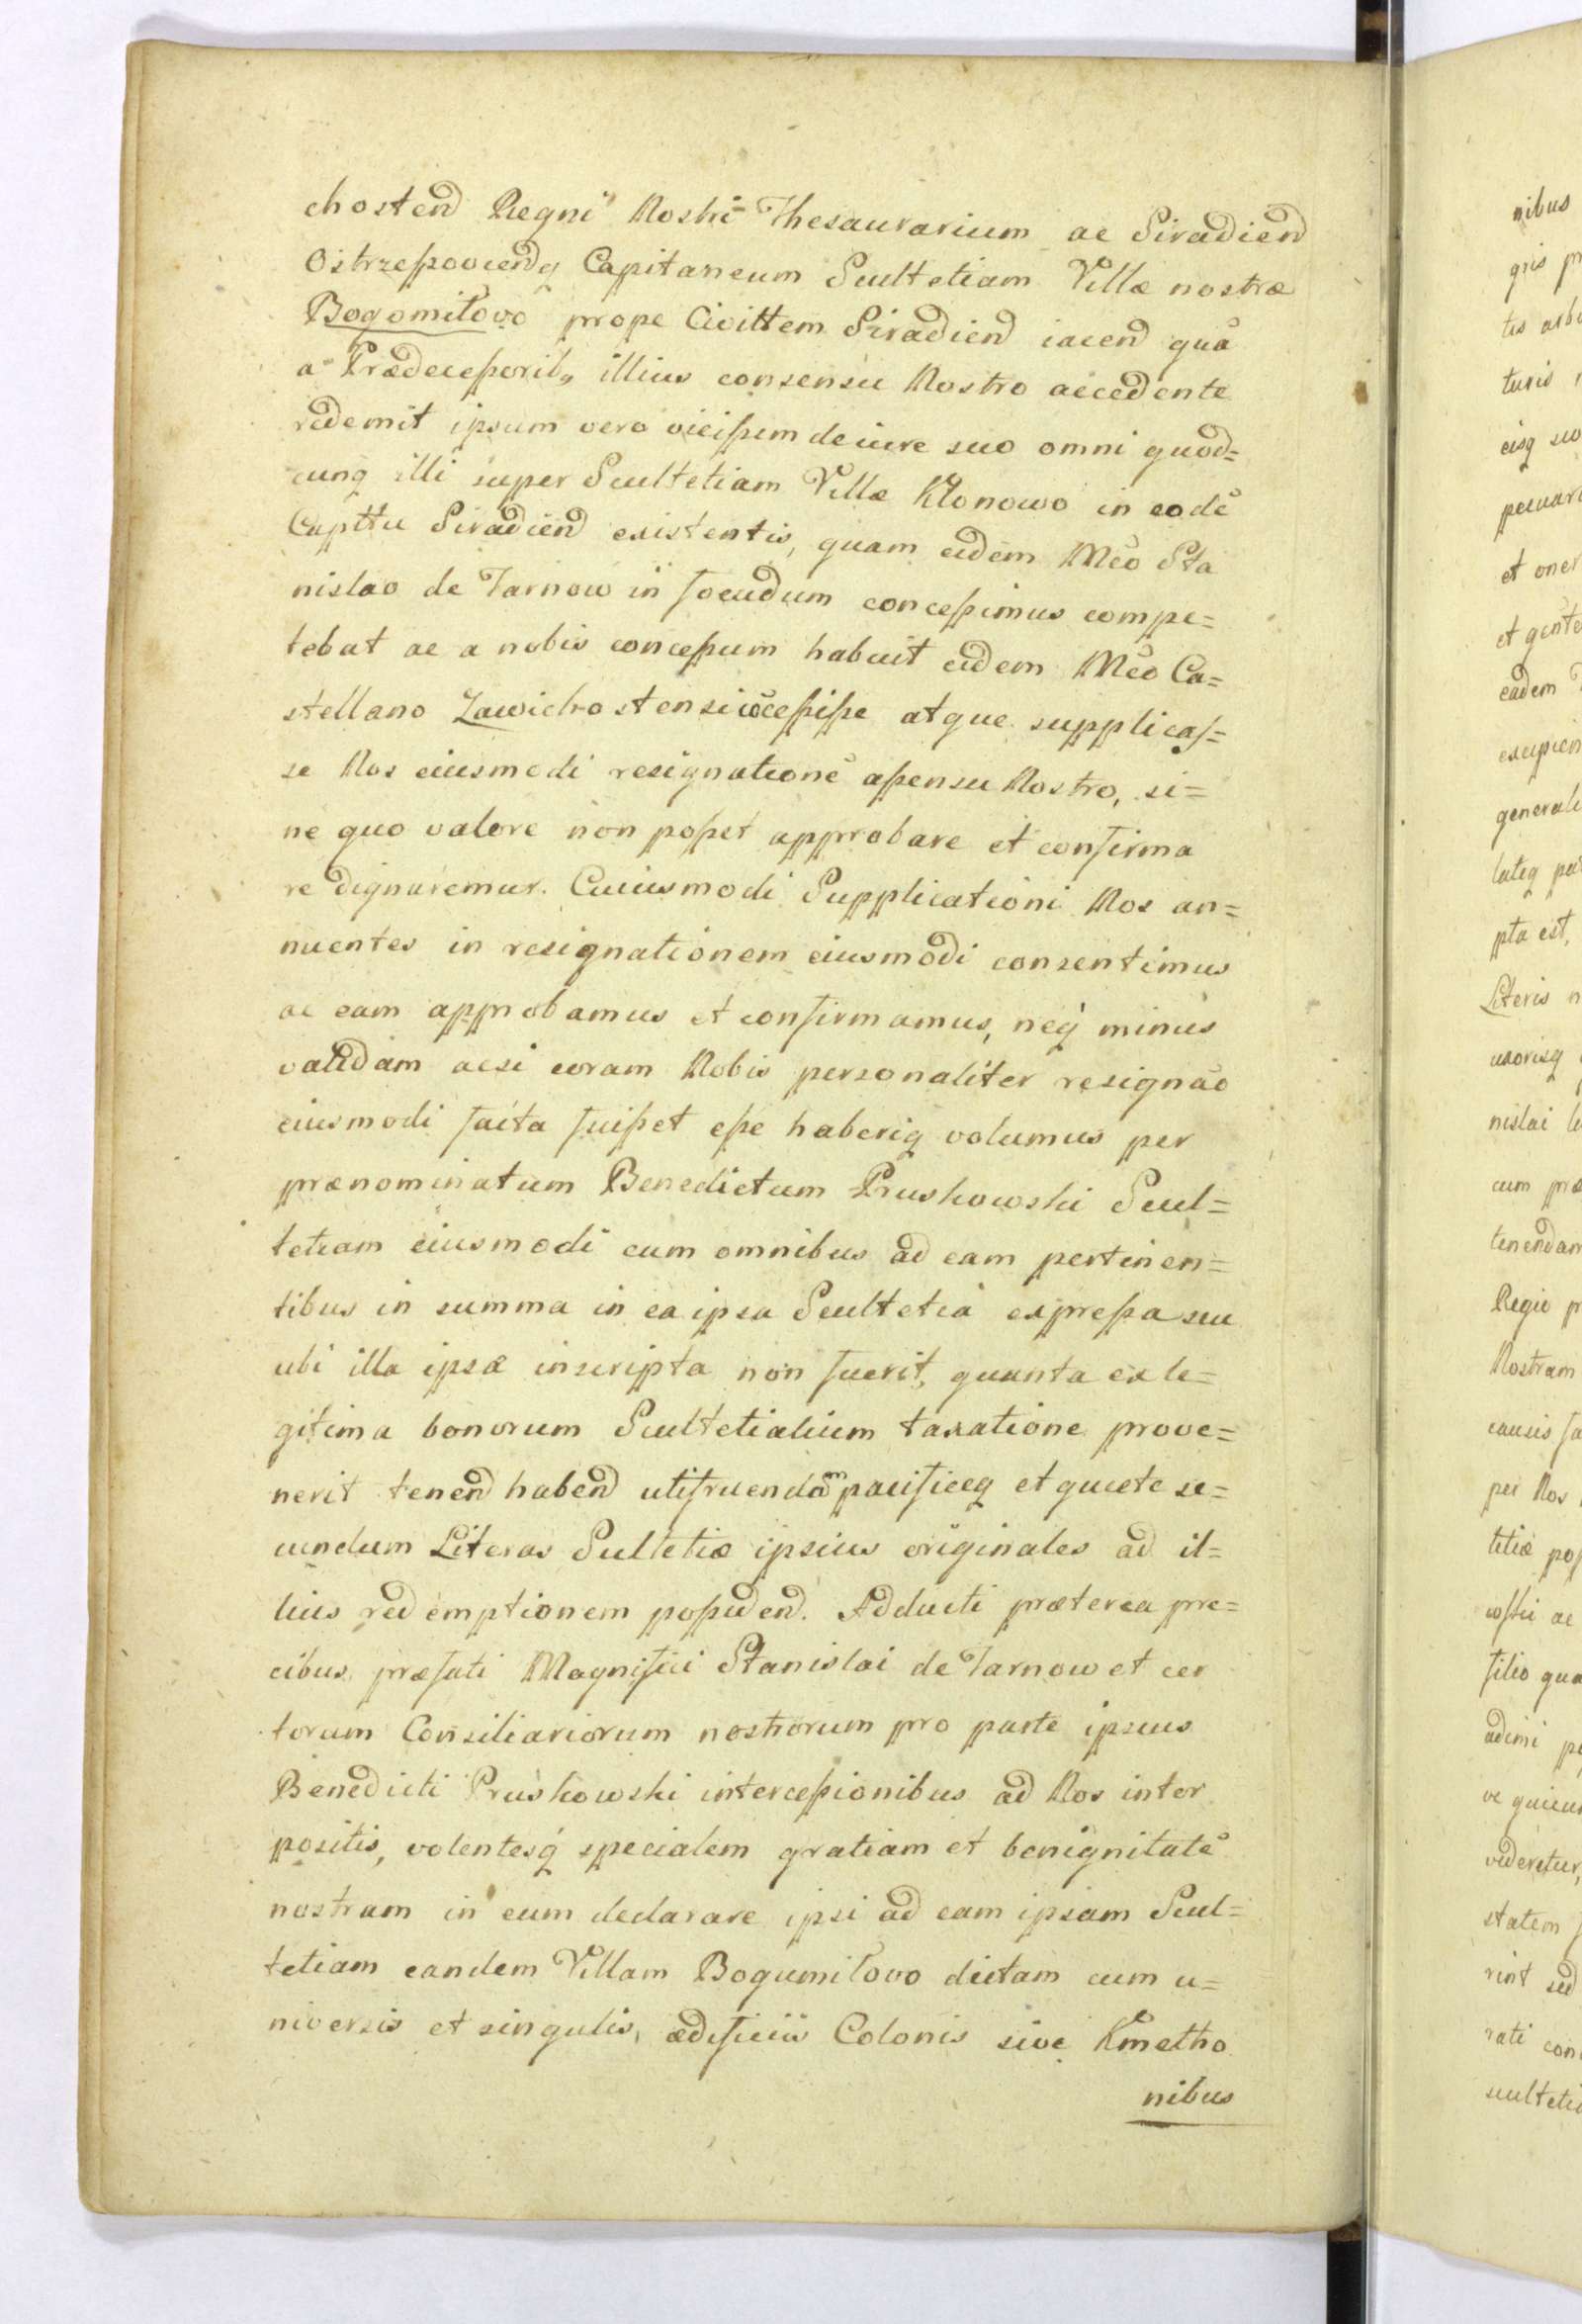 chostend Regni Nostri Thesaurarium ac Siradiend
Ostrzeſzoviendq Capitaneum Scultetiam Villæ nostræ
Bogomiłovo prope Civittem Siradiend iacend quā
a Prædeceßorib, illius consensu Nostro accedente
redemit ipsum vero vicißim de iure suo omni quod=
cunq illi super Scultetiam Villæ Kłonowo in eodē
Capttu Siradiend existentis, quam eidem Mco Sta
nislao de Tarnow in foeudum conceßimus compe=
tebat ac a nobis conceßum habuit eidem Mco Ca=
stellano Zawichostensi cōceßiße atque supplicaſ=
se Nos eiusmodi resignationē aßensu Nostro, si=
ne quo valore non poßet approbare et confirma
re dignaremur. Cuiusmodi Supplicationi Nos an=
nuentes in resignationem eiusmodi consentimus
ac eam approbamus et confirmamus, neq minus
validam acsi coram Nobis personaliter resignāo
eiusmodi facta fuißet eße haberiq volumus per
prænominatum Benedictum Pruskowski Scul=
tetiam eiusmodi cum omnibus ad eam pertinen=
tibus in summa in ea ipsa Scultetia expreßa seu
ubi illa ipsa inscripta non fuerit, quanta ex le=
gitima bonorum Scultetialium taxatione prove=
nerit tenend habend utifruendam pacificeq et quiete se=
cundum Literas Sultetiæ ipsius originales ad il=
lius redemptionem poßidend. Adducti præterea pre=
cibus præfati Magnifici Stanislai de Tarnow et cer
torum Consiliariorum nostrorum pro parte ipsius
Benedicti Pruskowski interceßionibus ad Nos inter
positis, volentesq specialem gratiam et benignitatē
nostram in eum declarare ipsi ad eam ipsam Scul=
tetiam eandem Villam Bogumiłovo dictam cum u=
niversis et singulis, ædificiis Colonis sive Kmetho
nibus
nibus
tis
turis
eisq
et
eadem
pta est,
Literis
uxorisq
nislai
cum
Nostram
per Nos
titiæ
ac
filio
adimi
videretur,
statem
rint sed
rati